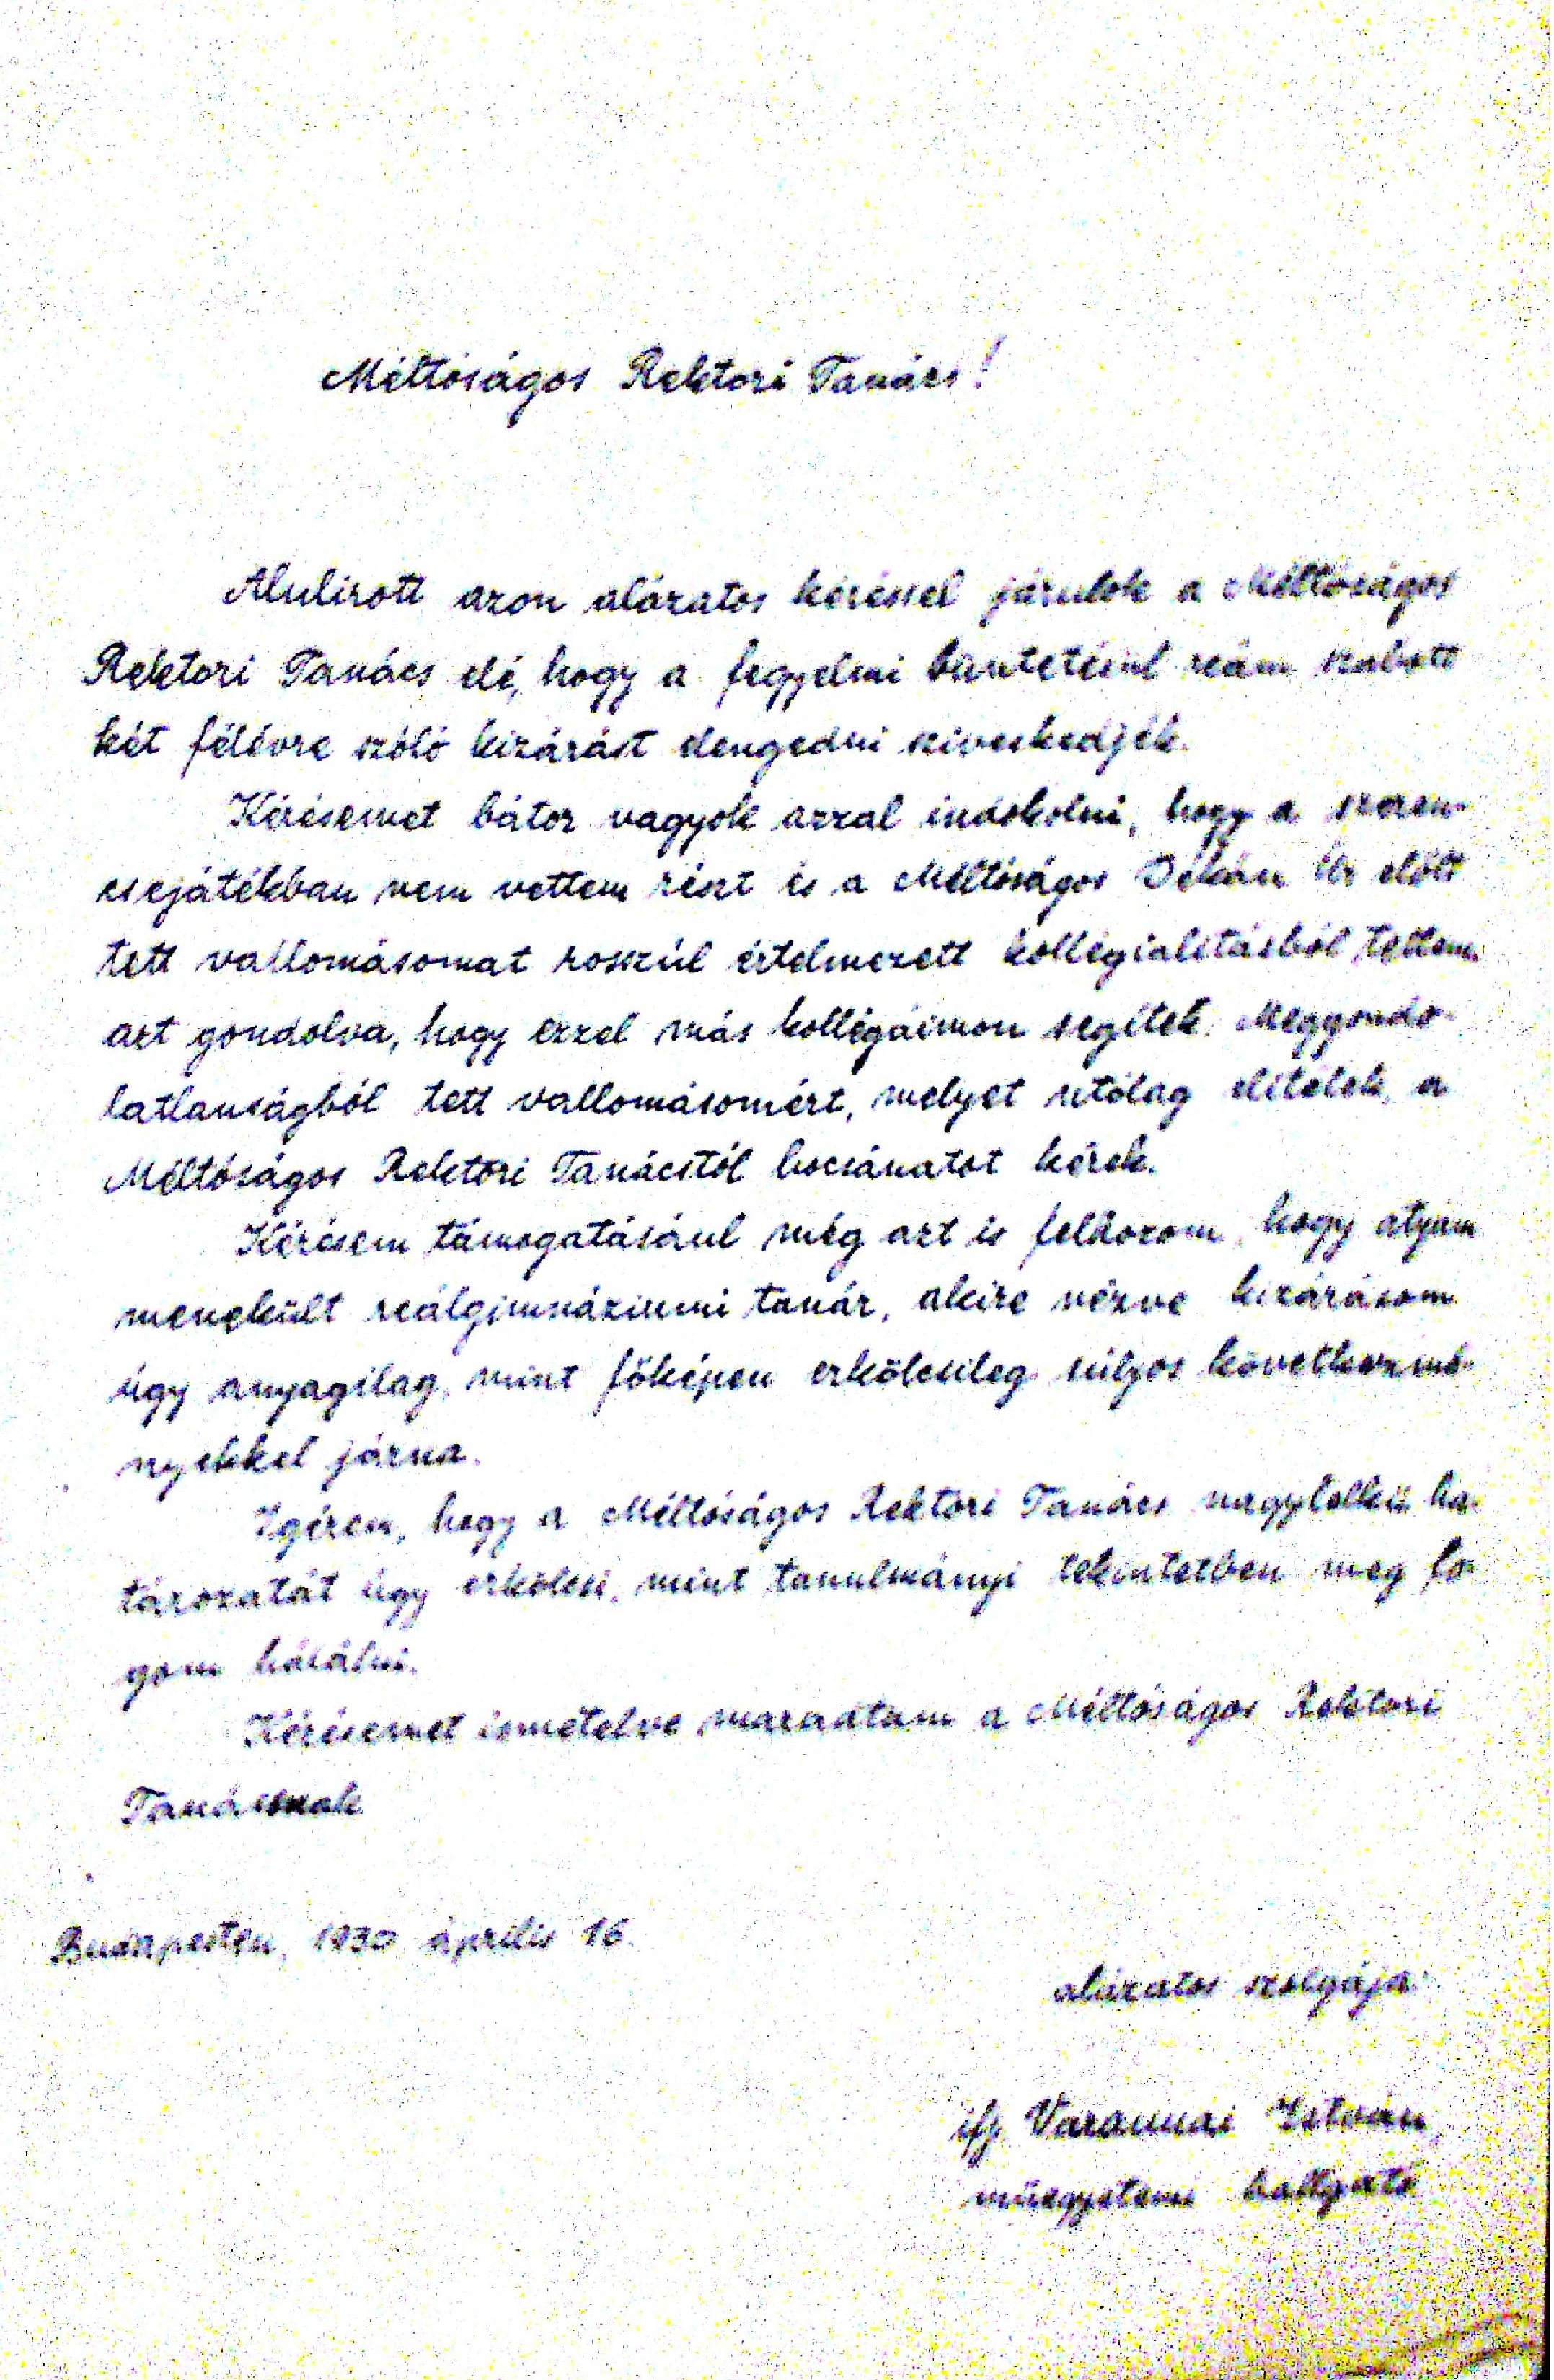 Méltóságos Rektori Tanács!
Alulirott azon alázatos kéréssel járulok a Méltóságos
Rektori Tanács elé, hogy a fegyelmi büntetésül reám szabott
két félévre szóló kizárást elengedni sziveskedjék.
Kérésemet bátor vagyok azzal indokolni, hogy a szeren-
csejátékban nem vettem részt és a Méltóságos Dékán Úr előtt
tett vallomásomat rosszúl értelmezett kollégialitásból tettem
azt gondolva, hogy ezzel más kollégáimon segítek. Meggondo-
latlanságból tett vallomásomért, melyet utólag elítélek, a
Méltóságos Rektori Tanácstól bocsánatot kérek.
Kérésem támogatásául még azt is felhozom, hogy atyám
menekült reálgimnáziumi tanár, akire nézve kizárásom
úgy anyagilag, mint főképen erkölcsileg súlyos következmé-
nyekkel járna.
Igérem, hogy a Méltóságos Rektori Tanács nagylelkü ha-
tározatát úgy erkölcsi, mint tanulmányi tekintetben meg fo-
gom hálálni.
Kérésemet ismételve maradtam a Méltóságos Rektori
Tanácsnak
Budapesten, 1930 április 16.
alázatos szolgája:
ifj Varannai István,
műegyetemi hallgató